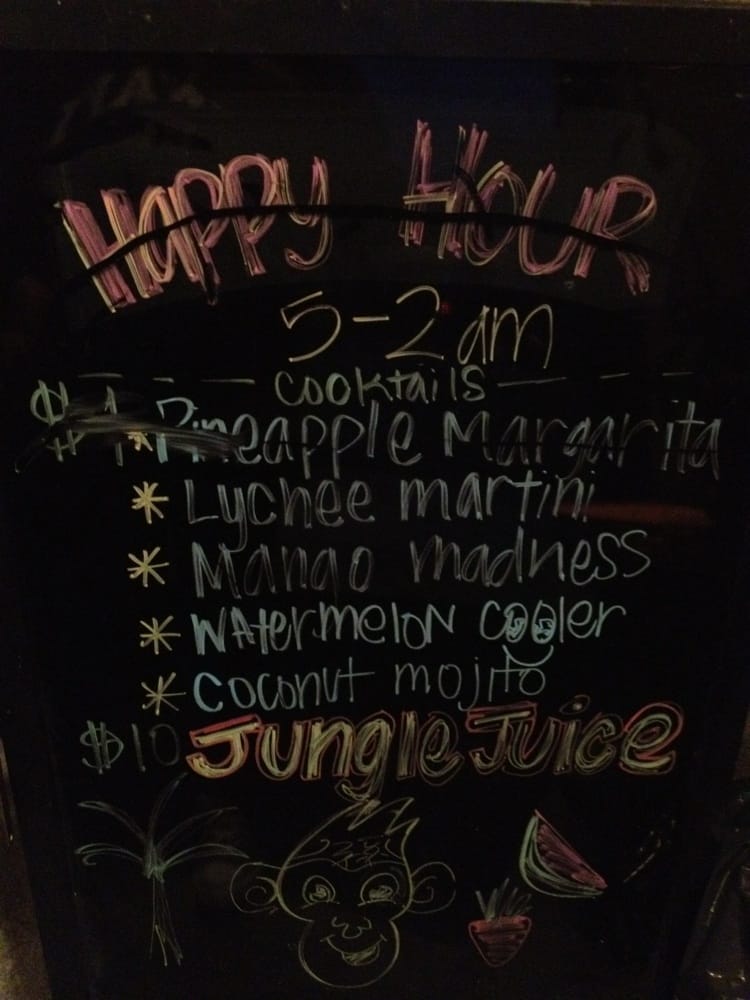 Happy Hour
5-2 am
cocktails
* Pineapple Margarita
* Lychee martini
* Mango madness
* Watermelon cooler
* Coconut mojito
$10 Jungle Juice